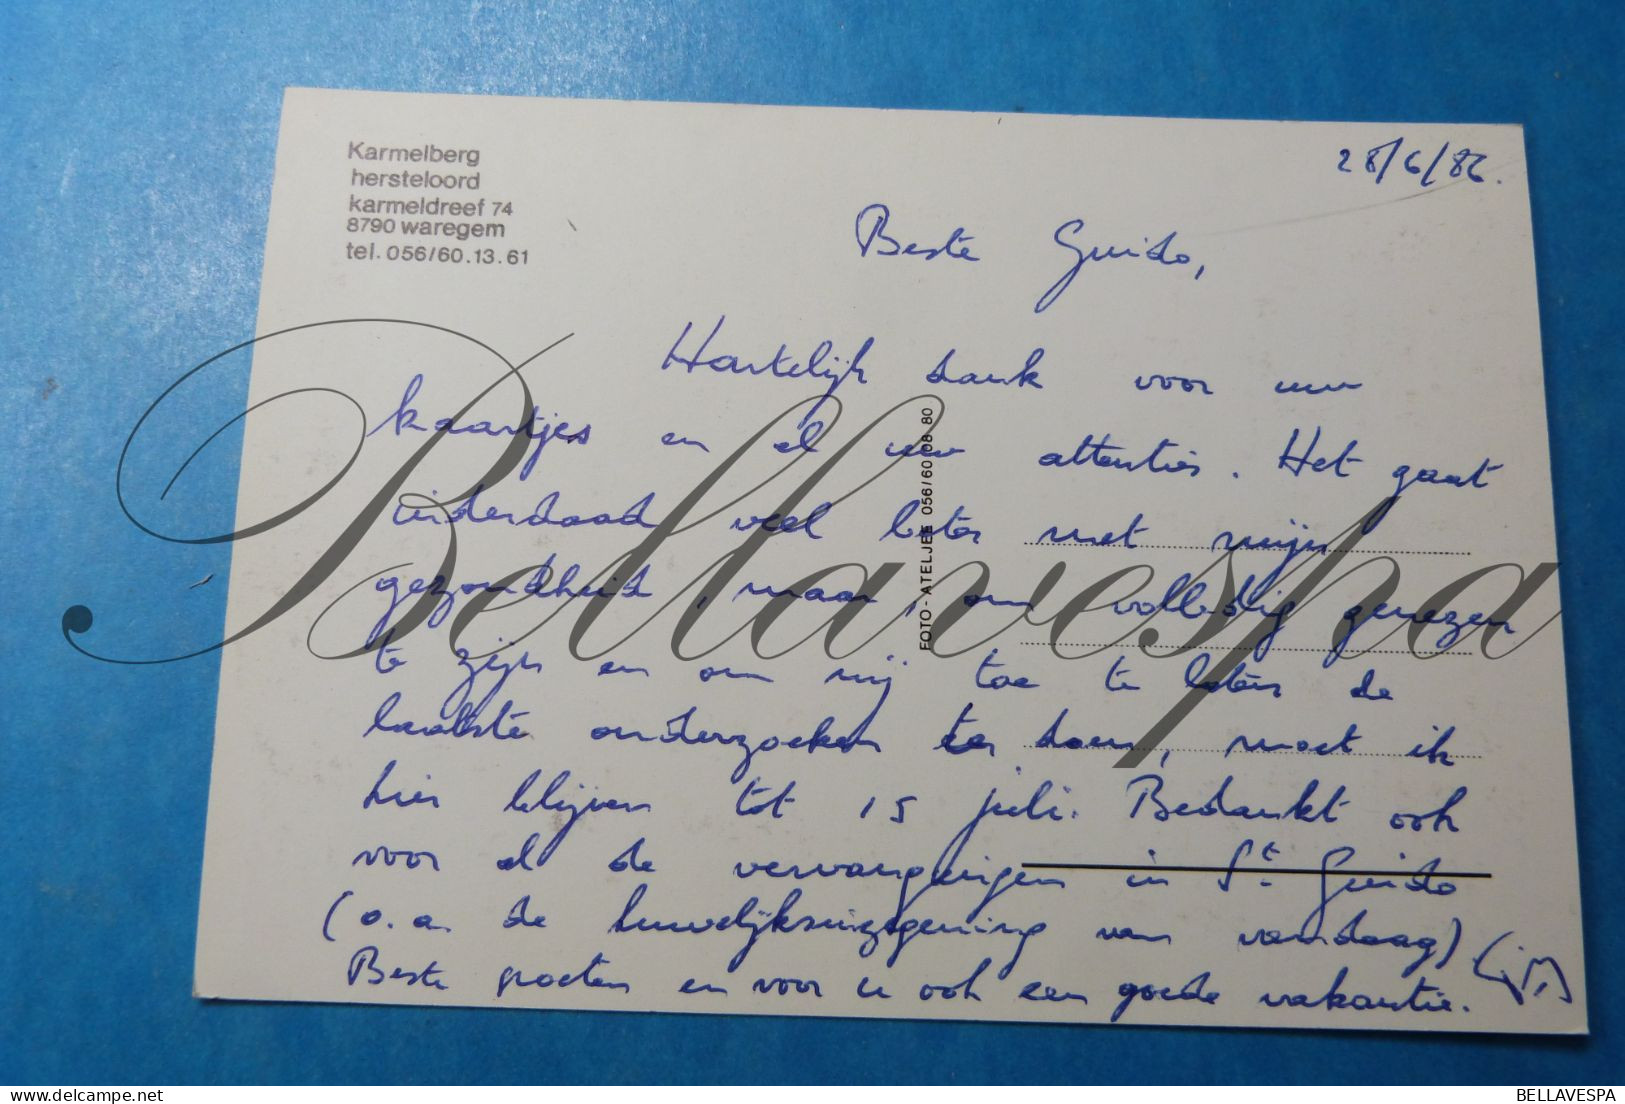 Karmelberg
hersteloord
karmeldreef 74
8790 waregem
tel. 056/60.13.61
28/6/86.
Beste Guido,
Hartelijk dank voor uw
kaartjes en al uw attenties. Het gaat
inderdaad veel beter met mijn
gezondheid, maar, om volledig genezen
te zijn en om mij toe te laten de
laatste onderzoeken te doen, moet ik
hier blijven tot 15 juli. Bedankt ook
voor al de vervangingen in St. Guido
(o.a. de huwelijksinzegening van vandaag)
Beste groeten en voor u ook een goede vakantie.
FOTO-ATELJEE 056/60 08 80
Bellavespa
BELLAVESPA